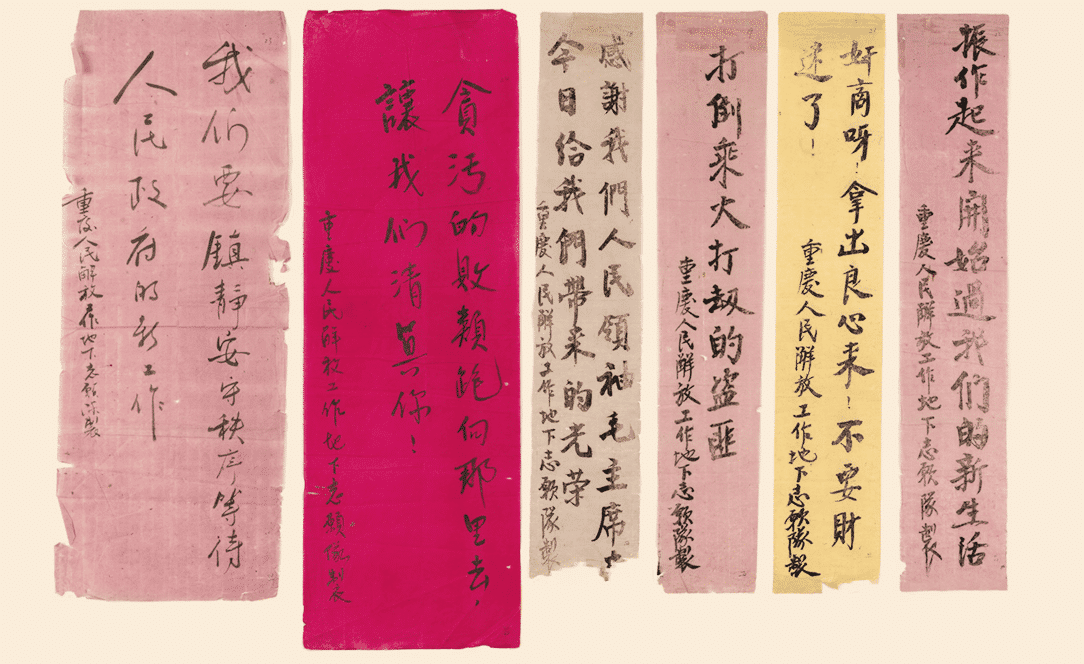 振作起来開始過我们的新生活
重慶人民解放工作地下志願隊製
奸商呀!拿出良心来!不要財
迷了!
重慶人民解放工作地下志願隊製
打倒乘火打刼的盗匪
重慶人民解放工作地下志願隊製
感謝我們人民領袖毛主席
今日给我們帶来的光荣
重慶人民解放工作地下志願隊製
貪污的败類跑向那里去,
讓我们清算你!
重慶人民解放工作地下志願隊製
我们要鎮静安守秩序等待
人民政府的新工作
重庆人民解放工作地下志願隊製